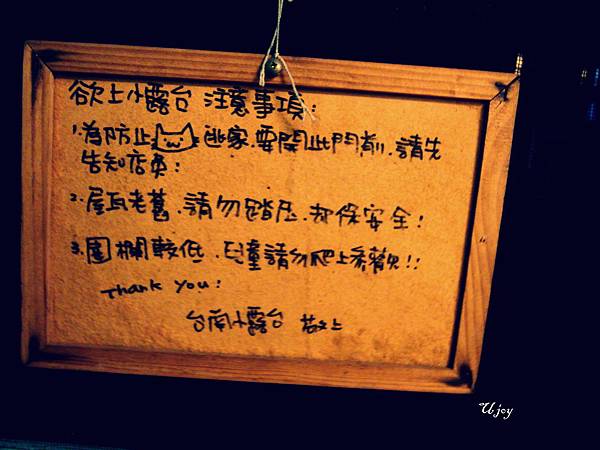 欲上小露台 注意事項:
1.為防止 逃家.要開此門前.請先
告知店員:
2.屋瓦老舊.請勿踏压.確保安全!
3.圍欄較低.兒童請勿爬上 !!
Thank you!
台南小露台 敬上
Ujoy